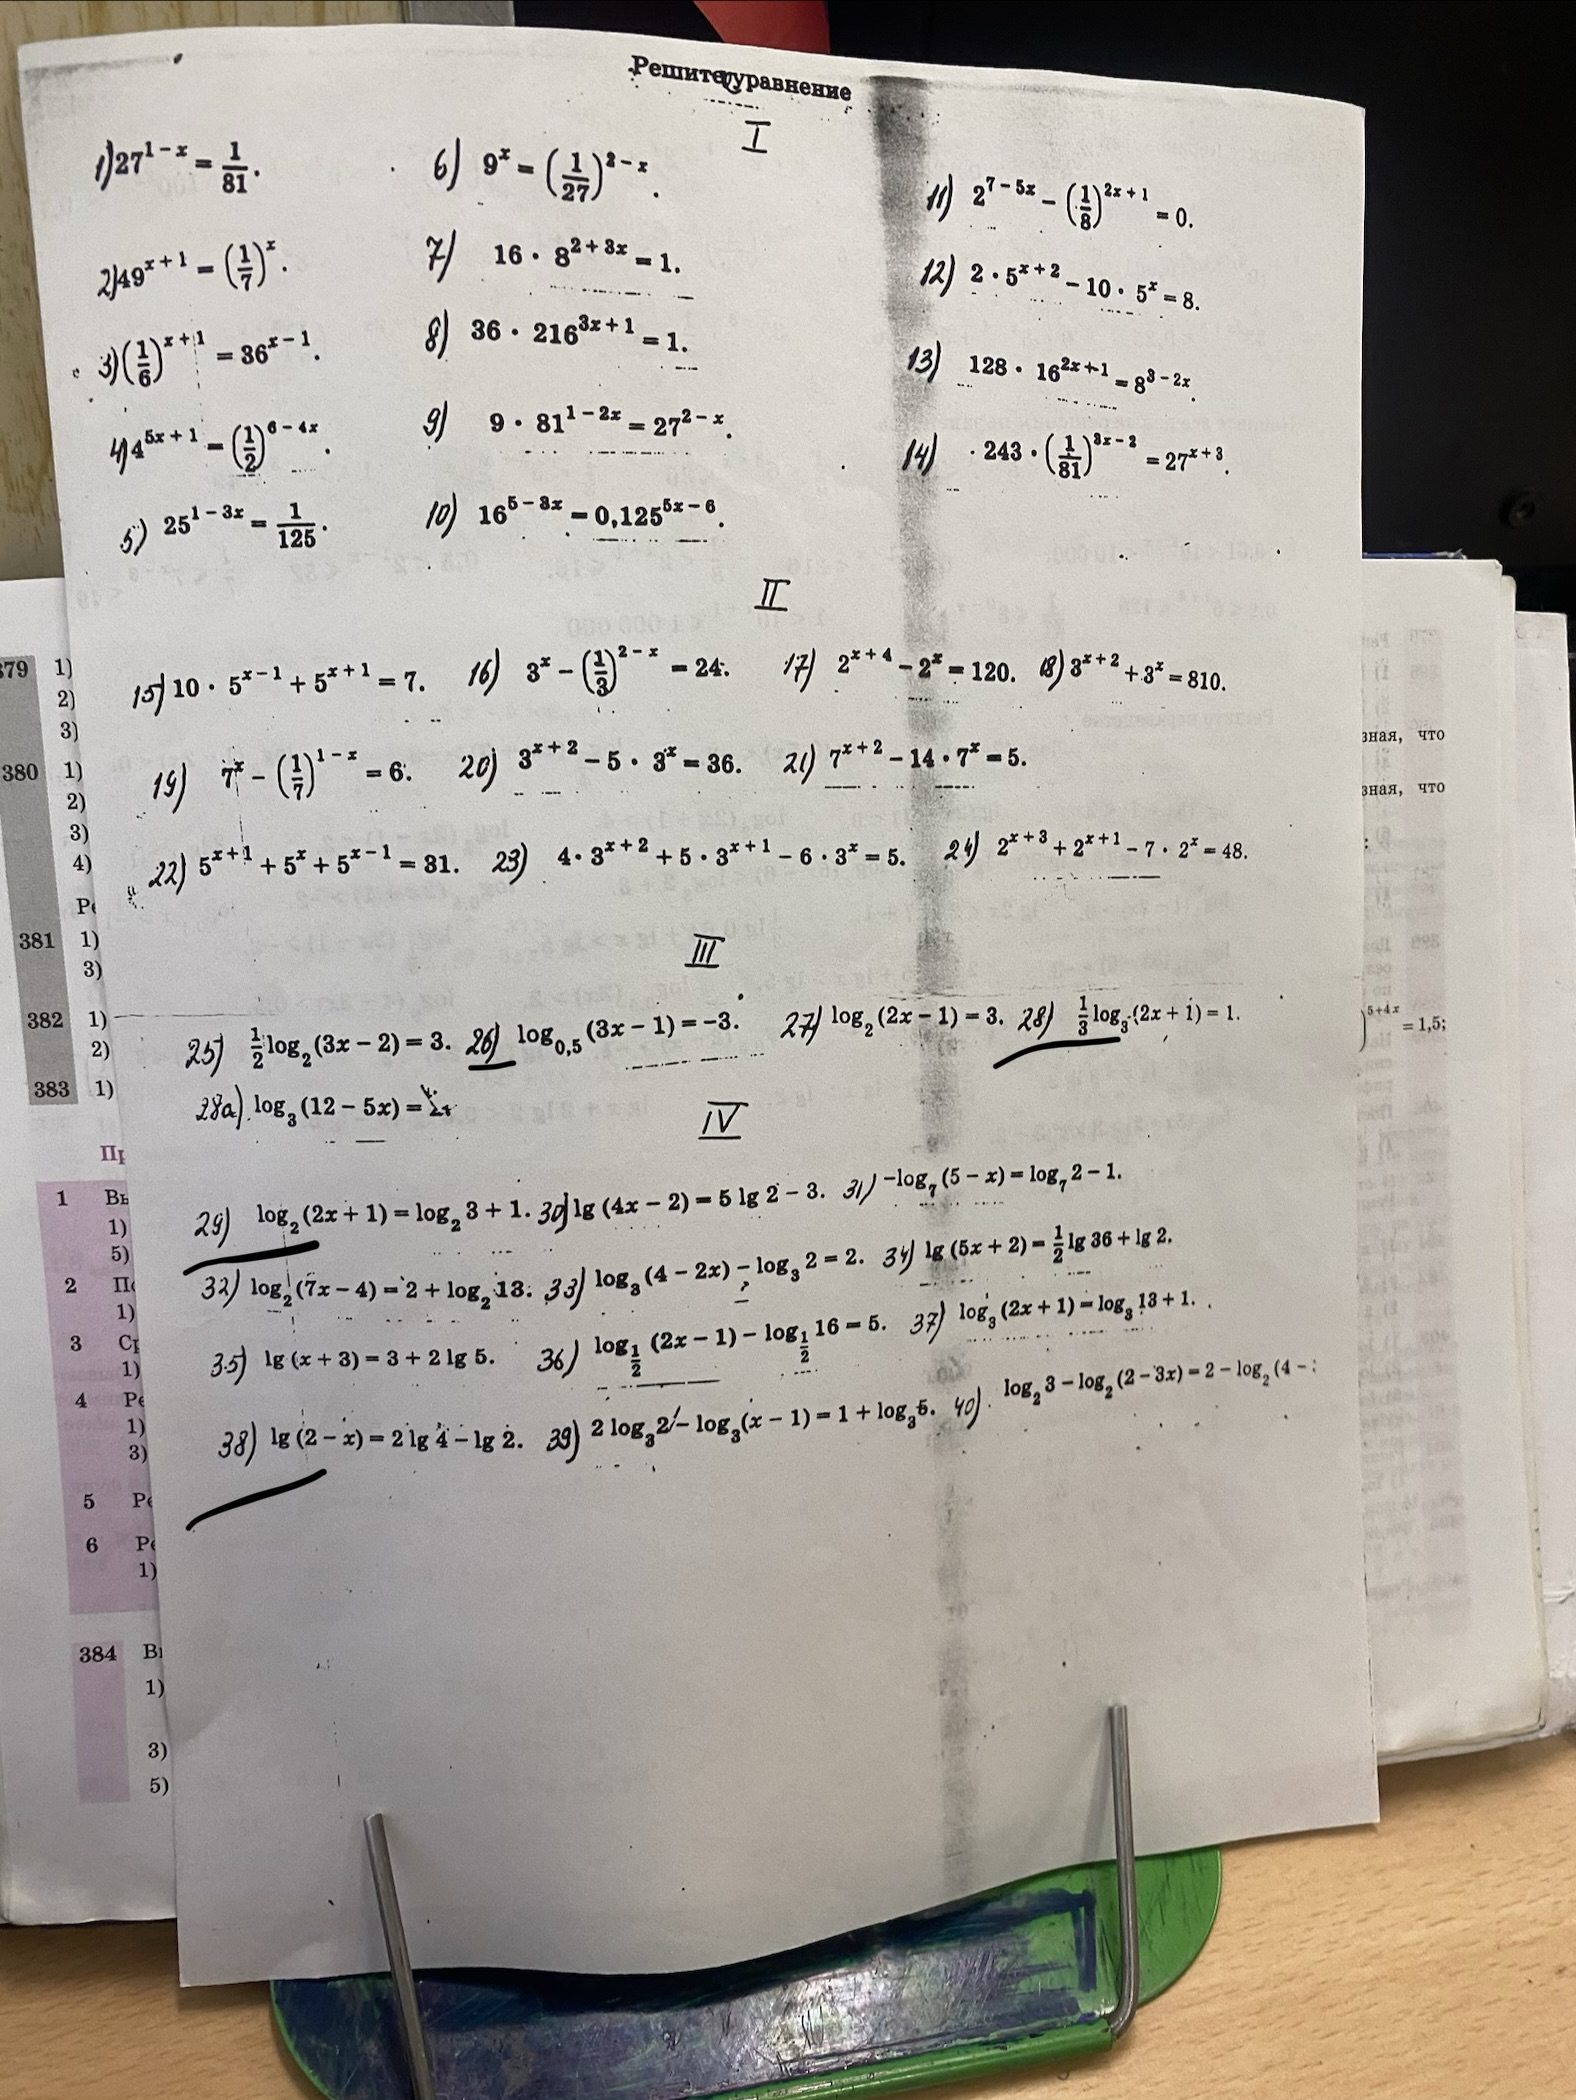 Решите уравнение
I
1) 27^{1-x} = 1/81.
6) 9^x = (1/27)^{2-x}.
11) 2^{7-5x} - (1/8)^{2x+1} = 0.
2) 49^{x+1} = (1/7)^x.
7) 16 · 8^{2+3x} = 1.
12) 2 · 5^{x+2} - 10 · 5^x = 8.
3) (1/6)^{x+1} = 36^{x-1}.
8) 36 · 216^{3x+1} = 1.
13) 128 · 16^{2x+1} = 8^{3-2x}.
4) 4^{5x+1} = (1/2)^{6-4x}.
9) 9 · 81^{1-2x} = 27^{2-x}.
14) · 243 · (1/81)^{3x-2} = 27^{x+3}.
5) 25^{1-3x} = 1/125.
10) 16^{5-3x} = 0,125^{5x-6}.
II
15) 10 · 5^{x-1} + 5^{x+1} = 7. 16) 3^x - (1/3)^{2-x} = 24. 17) 2^{x+4} - 2^x = 120. 18) 3^{x+2} + 3^x = 810.
19) 7^x - (1/7)^{1-x} = 6. 20) 3^{x+2} - 5 · 3^x = 36. 21) 7^{x+2} - 14 · 7^x = 5.
22) 5^{x+1} + 5^x + 5^{x-1} = 31. 23) 4 · 3^{x+2} + 5 · 3^{x+1} - 6 · 3^x = 5. 24) 2^{x+3} + 2^{x+1} - 7 · 2^x = 48.
III
25) 1/2 log_2 (3x - 2) = 3. 26) log_{0,5} (3x - 1) = -3. 27) log_2 (2x - 1) = 3. 28) 1/3 log_3 (2x + 1) = 1.
28а) log_3 (12 - 5x) =
IV
29) log_2 (2x + 1) = log_2 3 + 1. 30) lg (4x - 2) = 5 lg 2 - 3. 31) -log_7 (5 - x) = log_7 2 - 1.
32) log_2 (7x - 4) = 2 + log_2 13. 33) log_3 (4 - 2x) - log_3 2 = 2. 34) lg (5x + 2) = 1/2 lg 36 + lg 2.
35) lg (x + 3) = 3 + 2 lg 5. 36) log_{1/2} (2x - 1) - log_{1/2} 16 = 5. 37) log_3 (2x + 1) = log_3 13 + 1.
38) lg (2 - x) = 2 lg 4 - lg 2. 39) 2 log_3 2 - log_3 (x - 1) = 1 + log_3 5. 40) log_2 3 - log_2 (2 - 3x) = 2 - log_2 (4 -
379 1)
2)
3)
380 1)
2)
3)
4)
381 1)
3)
382 1)
2)
383 1)
1
1)
5)
2
1)
3
1)
4
1)
3)
5
6
1)
384
1)
3)
5)
зная, что
зная, что
)^{5+4x} = 1,5;